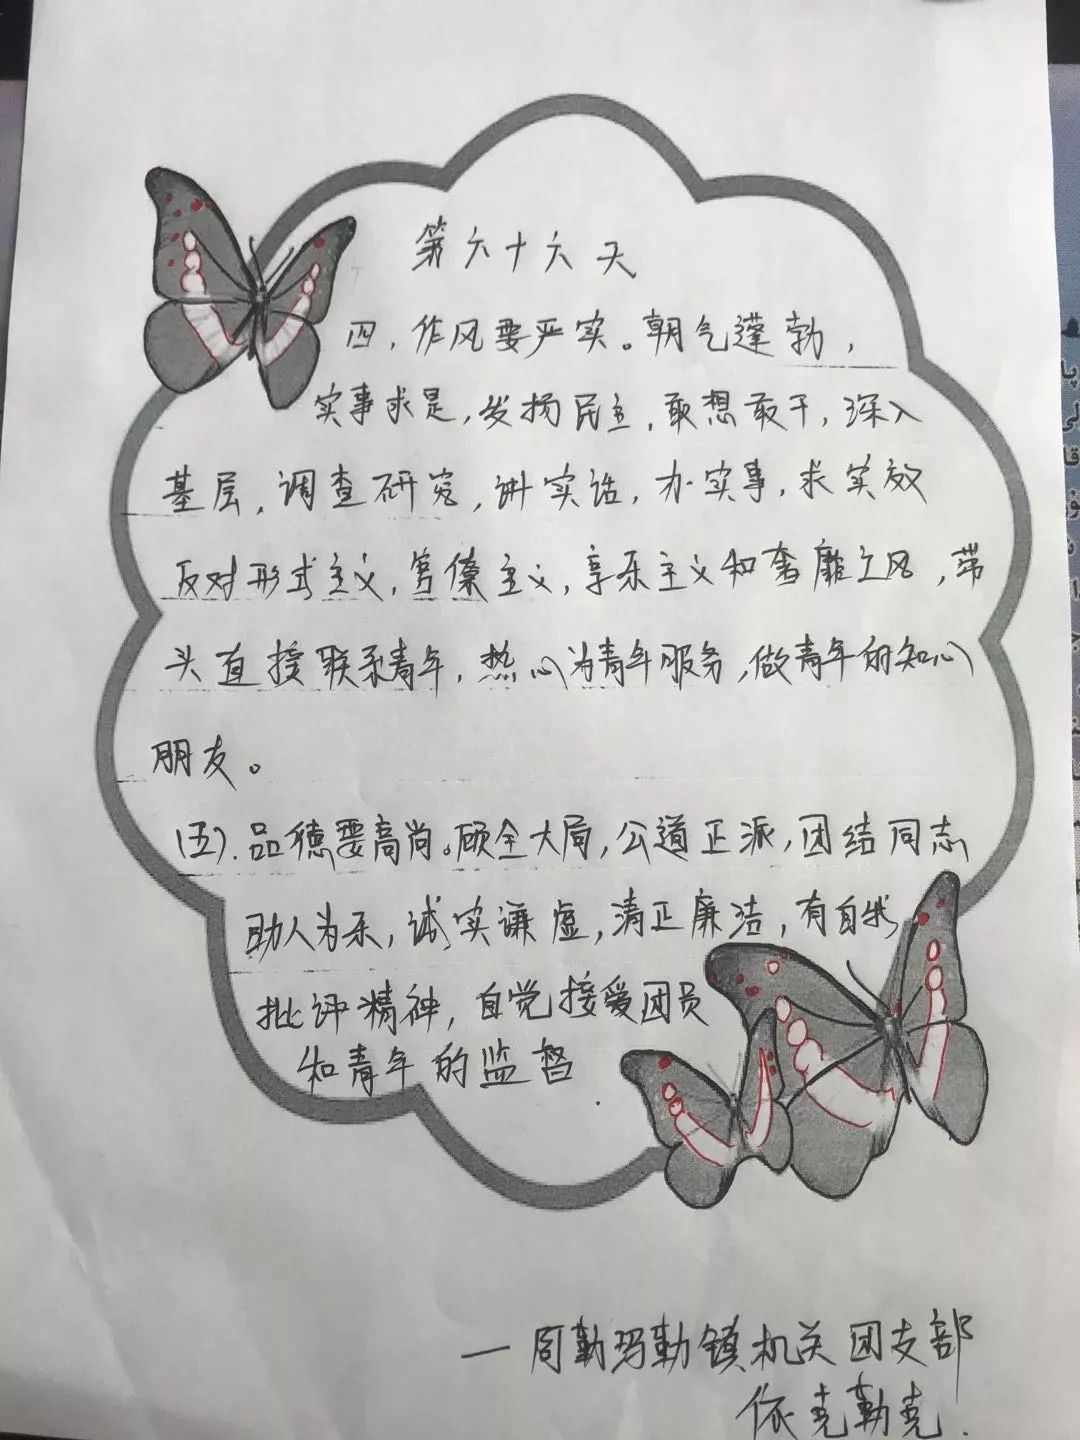 第六十六天
四，作风要严实。朝气蓬勃，
实事求是，发扬民主，敢想敢干，深入
基层，调查研究，讲实话，办实事，求实效
反对形式主义，官僚主义，享乐主义和奢靡之风，带
头直接联系青年，热心为青年服务，做青年的知心
朋友。
(五).品德要高尚。顾全大局，公道正派，团结同志
助人为乐，诚实谦虚，清正廉洁，有自我
批评精神，自觉接受团员
和青年的监督.
—周勒玛勒镇机关团支部
依克勒克.